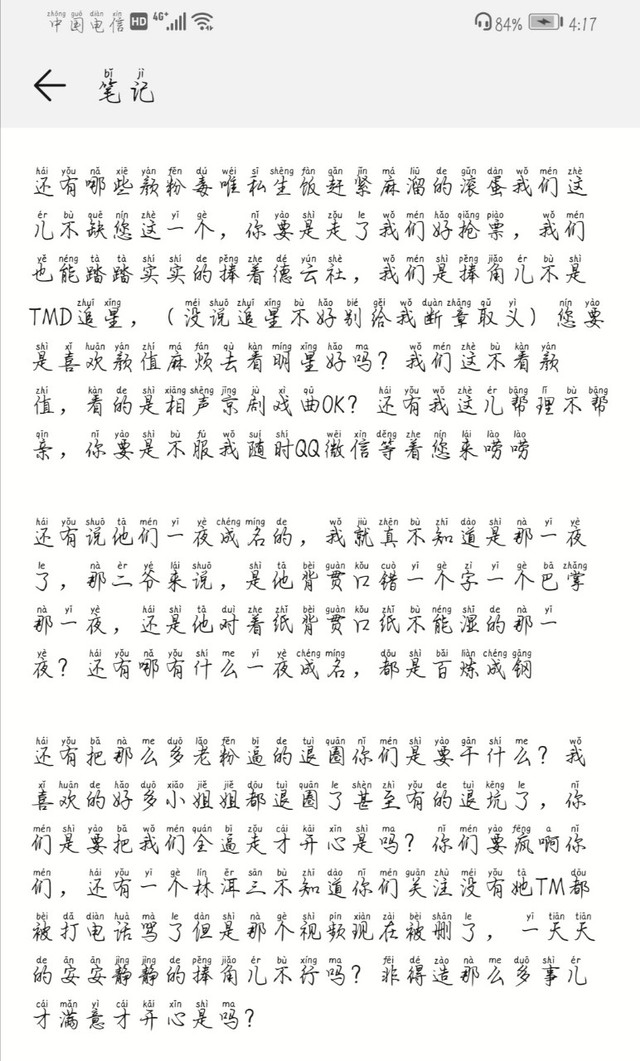 中国电信 HD 4G+ 84% 4:17
笔记
还有哪些颜粉毒唯私生饭赶紧麻溜的滚蛋我们这
儿不缺您这一个，你要是走了我们好抢票，我们
也能踏踏实实的捧着德云社，我们是捧角儿不是
TMD追星，（没说追星不好别给我断章取义）您要
是喜欢颜值麻烦去看明星好吗？我们这不看颜
值，看的是相声京剧戏曲OK？还有我这儿帮理不帮
亲，你要是不服我随时QQ微信等着您来唠唠
还有说他们一夜成名的，我就真不知道是那一夜
了，那二爷来说，是他背贯口错一个字一个巴掌
那一夜，还是他对着纸背贯口纸不能湿的那一
夜？还有哪有什么一夜成名，都是百炼成钢
还有把那么多老粉逼的退圈你们是要干什么？我
喜欢的好多小姐姐都退圈了甚至有的退坑了，你
们是要把我们全逼走才开心是吗？你们要疯啊你
们，还有一个林洱三不知道你们关注没有她TM都
被打电话骂了但是那个视频现在被删了，一天天
的安安静静的捧角儿不行吗？非得造那么多事儿
才满意才开心是吗？